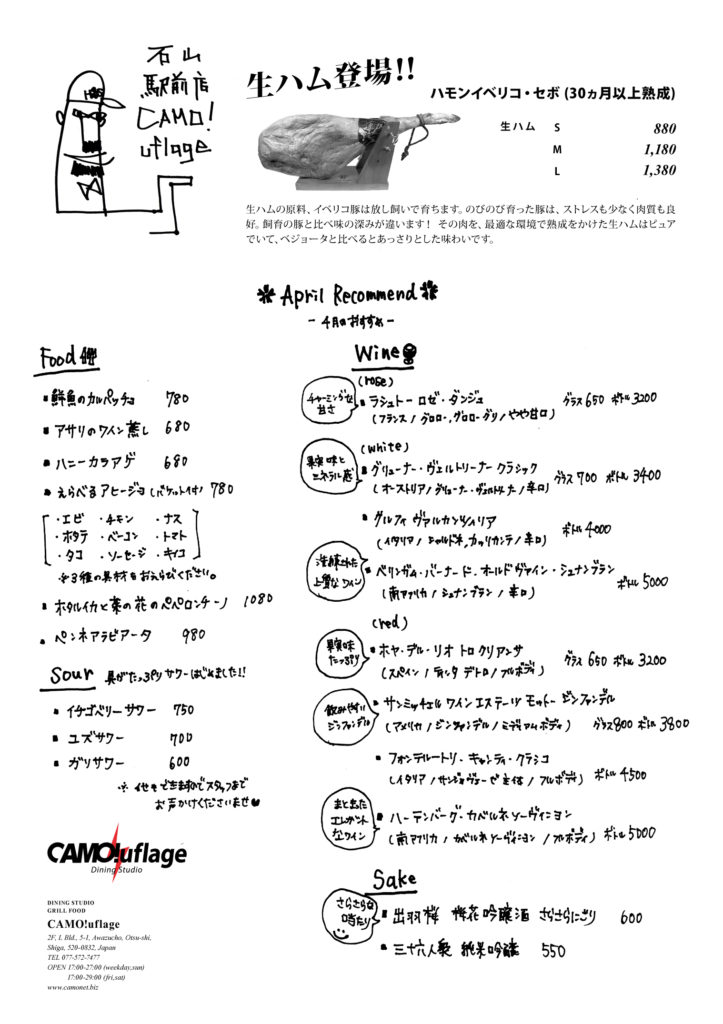 石山
駅前店
CAMO!
uflage
生ハム登場!!
ハモンイベリコ・セボ (30ヵ月以上熟成)
生ハム S 880
M 1,180
L 1,380
生ハムの原料、イベリコ豚は放し飼いで育ちます。のびのび育った豚は、ストレスも少なく肉質も良
好。飼育の豚と比べ味の深みが違います! その肉を、最適な環境で熟成をかけた生ハムはピュア
でいて、ベジョータと比べるとあっさりとした味わいです。
April Recommend
- 4月のおすすめ -
Food
・鮮魚のカルパッチョ 780
・アサリのワイン蒸し 680
・ハニーカラアゲ 680
・えらべるアヒージョ (バケット付) 780
・エビ ・チキン ・ナス
・ホタテ ・ベーコン ・トマト
・タコ ・ソーセージ ・キノコ
※3種の具材をおえらびください。
・ホタルイカと菜の花のペペロンチーノ 1080
・ペンネアラビアータ 980
Sour 具がたっぷりサワーはじめました!!
・イチゴベリーサワー 750
・ユズサワー 700
・ガリサワー 600
※ 他もできますのでスタッフまで
お声かけくださいませ
CAMO!uflage
Dining Studio
DINING STUDIO
GRILL FOOD
CAMO!uflage
2F, I. Bld., 5-1, Awazucho, Otsu-shi,
Shiga, 520-0832, Japan
TEL 077-572-7477
OPEN 17:00-27:00 (weekday,sun)
17:00-29:00 (fri,sat)
www.camonet.biz
Wine
(rose)
チャーミングな
甘さ
・ラシュトー ロゼ・ダンジュ グラス 650 ボトル 3200
(フランス / グロロー, グロロー・グリ / やや甘口)
(white)
果実味と
ミネラル感
・グリューナー・ヴェルトリーナー クラシック グラス 700 ボトル 3400
(オーストリア / グリューナー・ヴェルトリーナー / 辛口)
・グルフィ ヴァルカンツィリア ボトル 4000
(イタリア / シャルドネ, カッリカンテ / 辛口)
洗練された
上質なワイン
・ベリンガム・バーナード・オールドヴァイン・シュナンブラン ボトル 5000
(南アフリカ / シュナンブラン / 辛口)
(red)
果実味
たっぷり
・ホヤ・デル・リオ トロ クリアンサ グラス 650 ボトル 3200
(スペイン / ティンタ デ トロ / フルボディ)
飲みやすい
ジンファンデル
・サンミッチェル ワイン エステーツ モットー ジンファンデル
(アメリカ / ジンファンデル / ミディアムボディ) グラス800 ボトル 3800
・フォンテルートリ・キャンティ・クラシコ
(イタリア / サンジョヴェーゼ主体 / フルボディ) ボトル 4500
まとまった
エレガント
なワイン
・ハーテンバーグ・カベルネ ソーヴィニヨン
(南アフリカ / カベルネ ソーヴィニヨン / フルボディ) ボトル 5000
Sake
さらさらな
口当たり
・出羽桜 桜花吟醸酒 さらさらにごり 600
・三十六人衆 純米吟醸 550